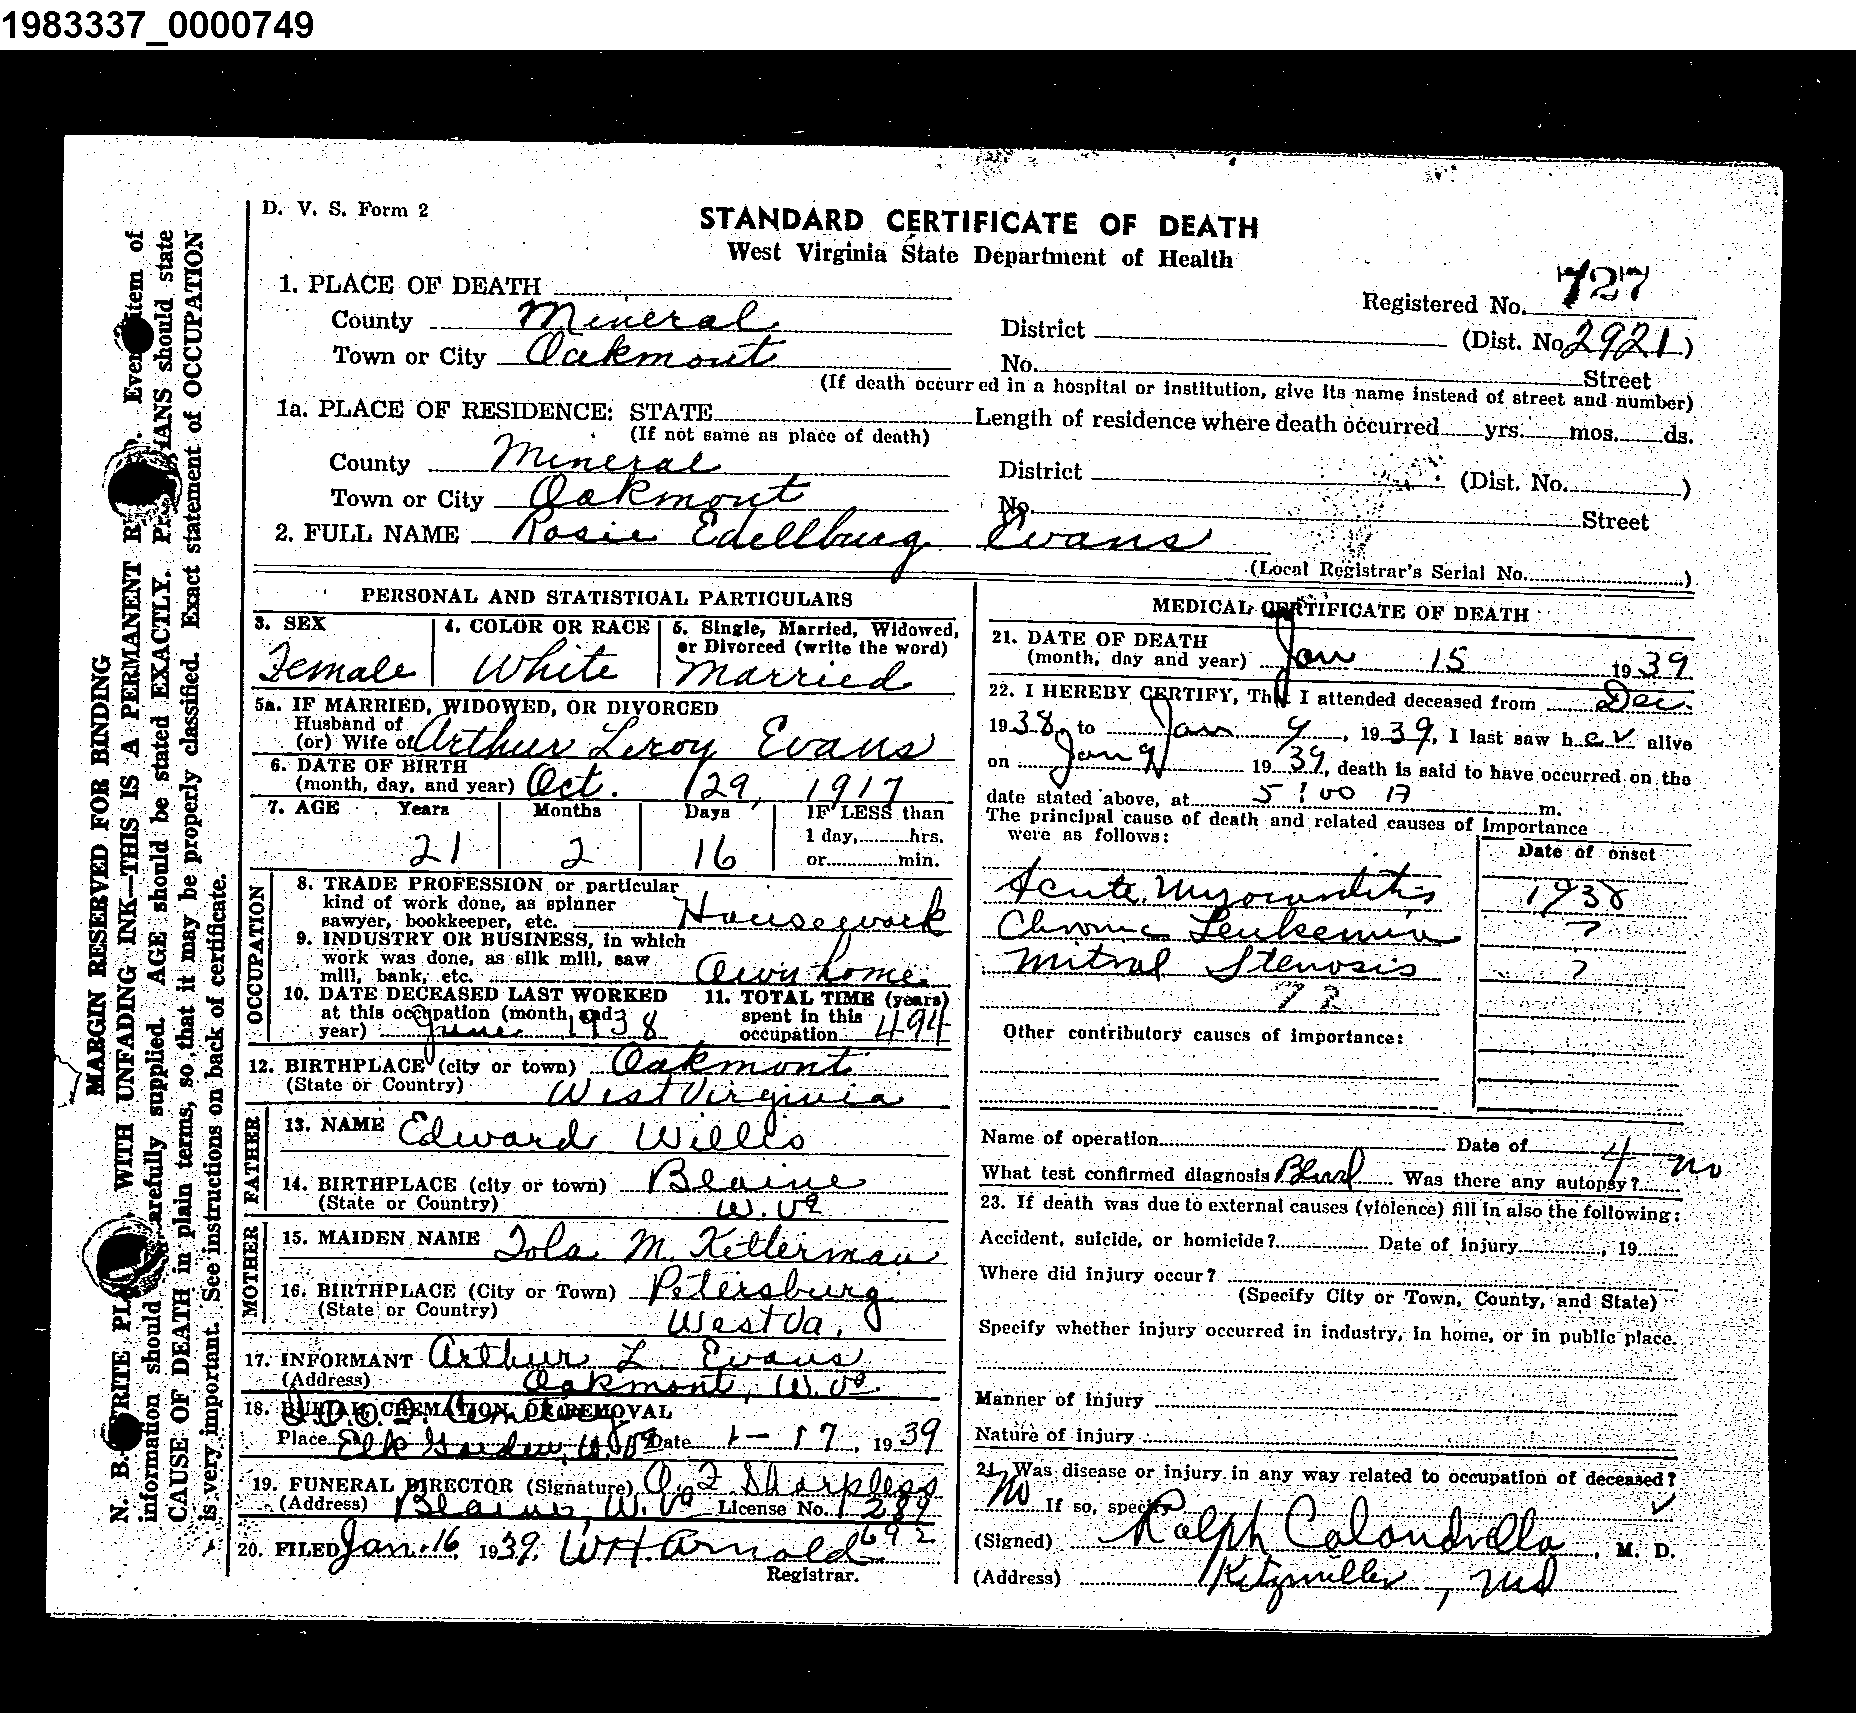 1983337_0000749
D. V. S. Form 2
STANDARD CERTIFICATE OF DEATH
West Virginia State Department of Health
Registered No. 727
1. PLACE OF DEATH
County Mineral
District (Dist. No. 2921)
Town or City Oakmont
No. Street
(If death occurred in a hospital or institution, give its name instead of street and number)
1a. PLACE OF RESIDENCE: STATE
Length of residence where death occurred yrs. mos. ds.
(If not same as place of death)
County Mineral
District (Dist. No. )
Town or City Oakmont
No. Street
2. FULL NAME Rosie Edellburg Evans
(Local Registrar's Serial No. )
PERSONAL AND STATISTICAL PARTICULARS
3. SEX
Female
4. COLOR OR RACE
White
5. Single, Married, Widowed,
or Divorced (write the word)
Married
5a. IF MARRIED, WIDOWED, OR DIVORCED
Husband of
(or) Wife of Arthur Leroy Evans
6. DATE OF BIRTH
(month, day, and year) Oct. 29, 1917
7. AGE Years Months Days IF LESS than
1 day, hrs.
21 2 16 or min.
OCCUPATION
8. TRADE PROFESSION or particular
kind of work done, as spinner
sawyer, bookkeeper, etc. Housework
9. INDUSTRY OR BUSINESS, in which
work was done, as silk mill, saw
mill, bank, etc. Own home
10. DATE DECEASED LAST WORKED
at this occupation (month and
year) June 1938
11. TOTAL TIME (years)
spent in this
occupation 4 94
12. BIRTHPLACE (city or town) Oakmont
(State or Country) West Virginia
FATHER
13. NAME Edward Willis
14. BIRTHPLACE (city or town) Blaine
(State or Country) W. Va
MOTHER
15. MAIDEN NAME Iola M. Kitterman
16. BIRTHPLACE (City or Town) Petersburg
(State or Country) West Va.
17. INFORMANT Arthur L. Evans
(Address) Oakmont, W. Va
18. BURIAL, CREMATION, OR REMOVAL
I.O.O.F. Cemetery
Place Elk Garden, W. Va Date 1-17, 1939
19. FUNERAL DIRECTOR (Signature) O. F. Sharpless
(Address) Blaine, W. Va License No. 1289
692
20. FILED Jan. 16, 1939. W. H. Arnold
Registrar.
MEDICAL CERTIFICATE OF DEATH
21. DATE OF DEATH
(month, day and year) Jan 15 1939
22. I HEREBY CERTIFY, That I attended deceased from Dec.
1938, to Jan 9, 1939, I last saw her alive
on Jan 9 1939, death is said to have occurred on the
date stated above, at 5:00 A m.
The principal cause of death and related causes of importance
were as follows:
Date of onset
Acute Myocarditis 1938
Chronic Leukemia ?
Mitral Stenosis ?
72
Other contributory causes of importance:
Name of operation Date of 4
What test confirmed diagnosis Blood Was there any autopsy? no
23. If death was due to external causes (violence) fill in also the following:
Accident, suicide, or homicide? Date of injury , 19
Where did injury occur?
(Specify City or Town, County, and State)
Specify whether injury occurred in industry, in home, or in public place.
Manner of injury
Nature of injury
24. Was disease or injury in any way related to occupation of deceased?
No If so, specify
(Signed) Ralph Calandrella, M. D.
(Address) Kitzmiller, Md
MARGIN RESERVED FOR BINDING
WITH UNFADING INK—THIS IS A PERMANENT
information should carefully supplied. AGE should be stated EXACTLY. should state
CAUSE OF DEATH in plain terms, so that it may be properly classified. Exact statement of OCCUPATION
is very important. See instructions on back of certificate.